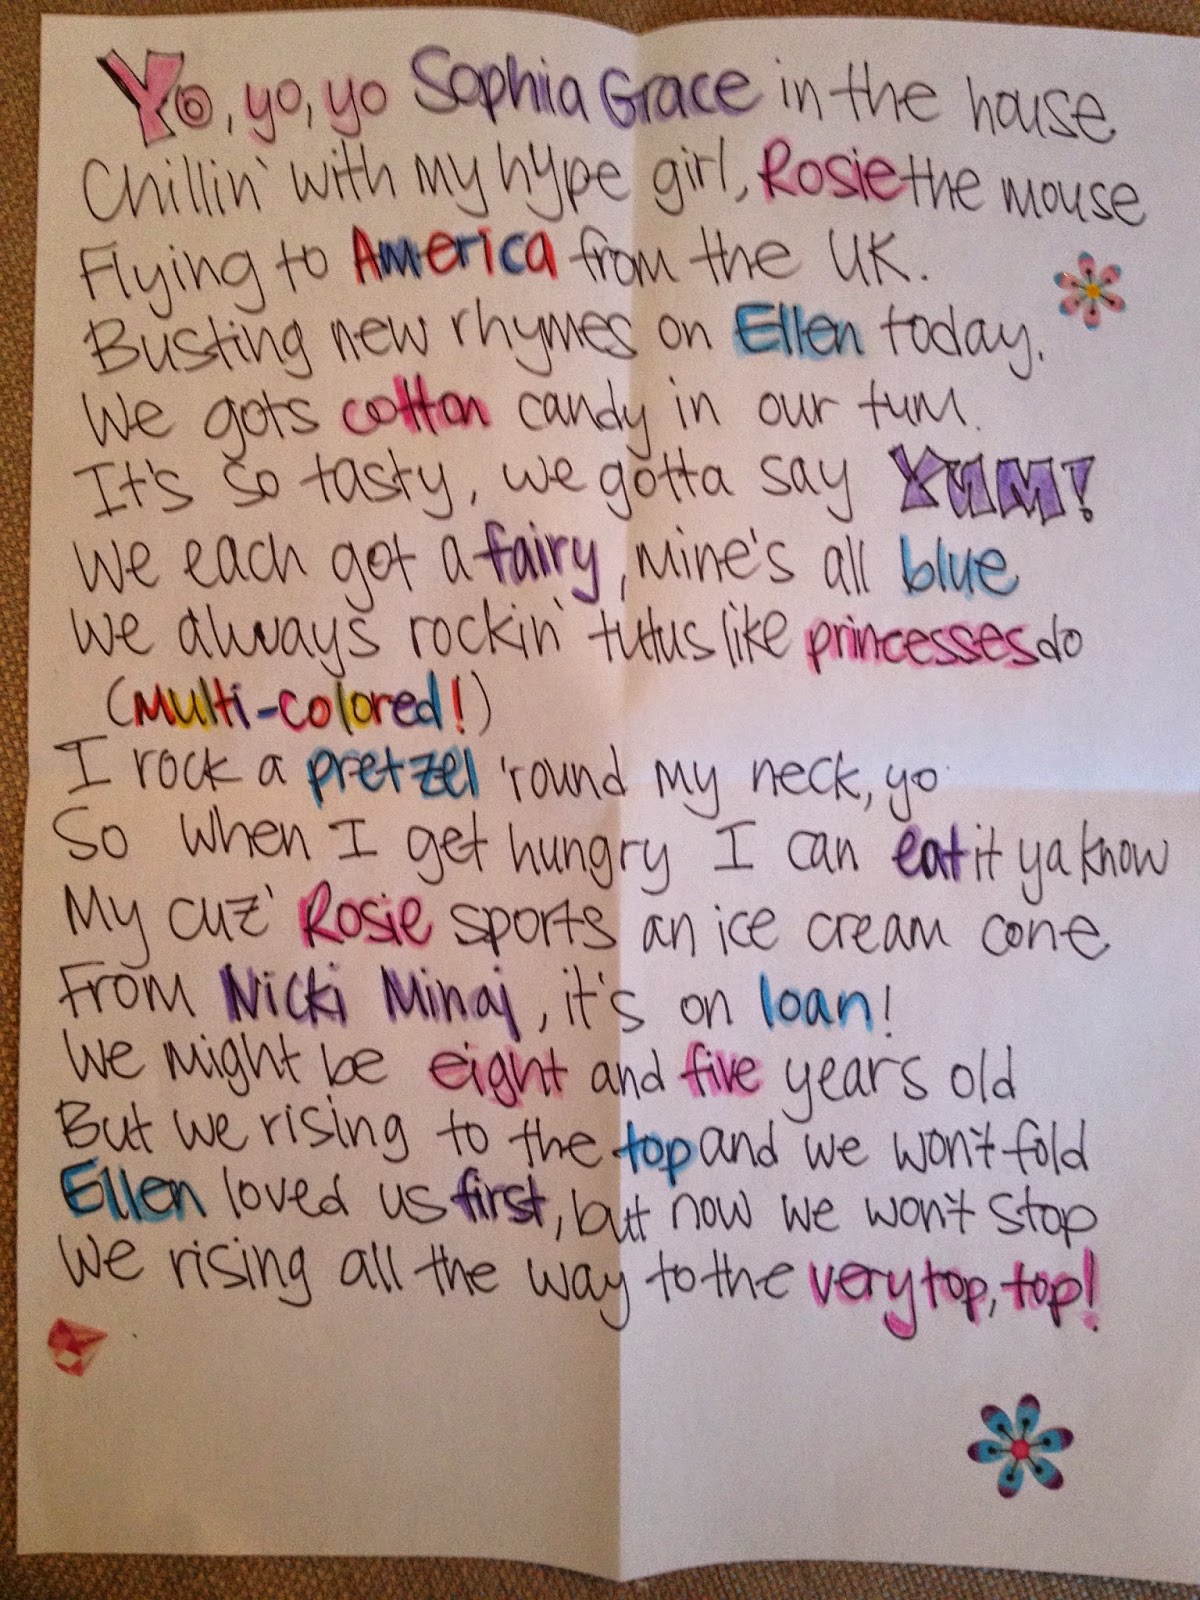 Yo, yo, yo Sophia Grace in the house
Chillin' with my hype girl, Rosie the mouse
Flying to America from the UK.
Busting new rhymes on Ellen today.
We gots cotton candy in our tum.
It's so tasty, we gotta say YUM!
We each got a fairy, mine's all blue
We always rockin' tutus like princesses do
(Multi-colored!)
I rock a pretzel 'round my neck, yo
So when I get hungry I can eat it ya know
My cuz' Rosie sports an ice cream cone
From Nicki Minaj, it's on loan!
We might be eight and five years old
But we rising to the top and we won't fold
Ellen loved us first, but now we won't stop
We rising all the way to the very top, top!